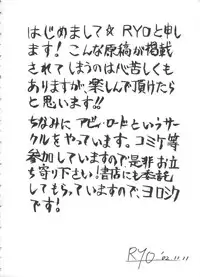 はじめまして☆ RYOと申し
ます! こんな原稿が掲載
されてしまうのは心苦しくも
ありますが、楽しんで頂けたら
と思います!!
ちなみに アビィ・ロードというサー
クルをやっています。コミケ等
参加していますので是非お立
ち寄り下さい!書店にも委託
してもらっていますので、ヨロシク
です!
RYO '02.11.11